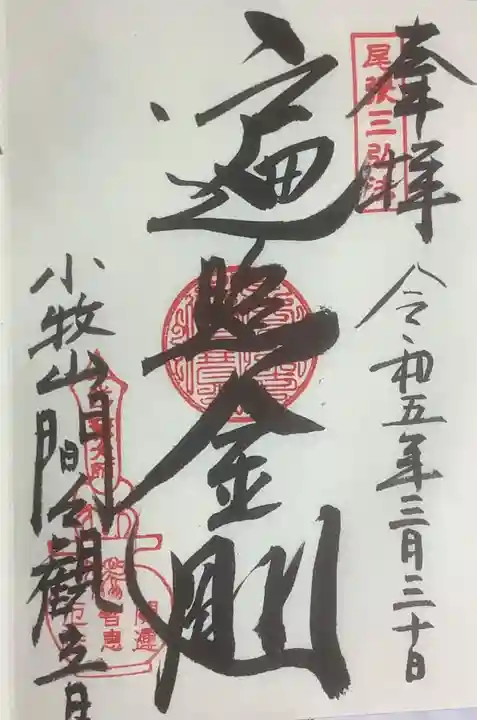 奉拝
尾張三弘法
令和五年三月三十日
遍照金剛
小牧山間々観音
開運
智恵